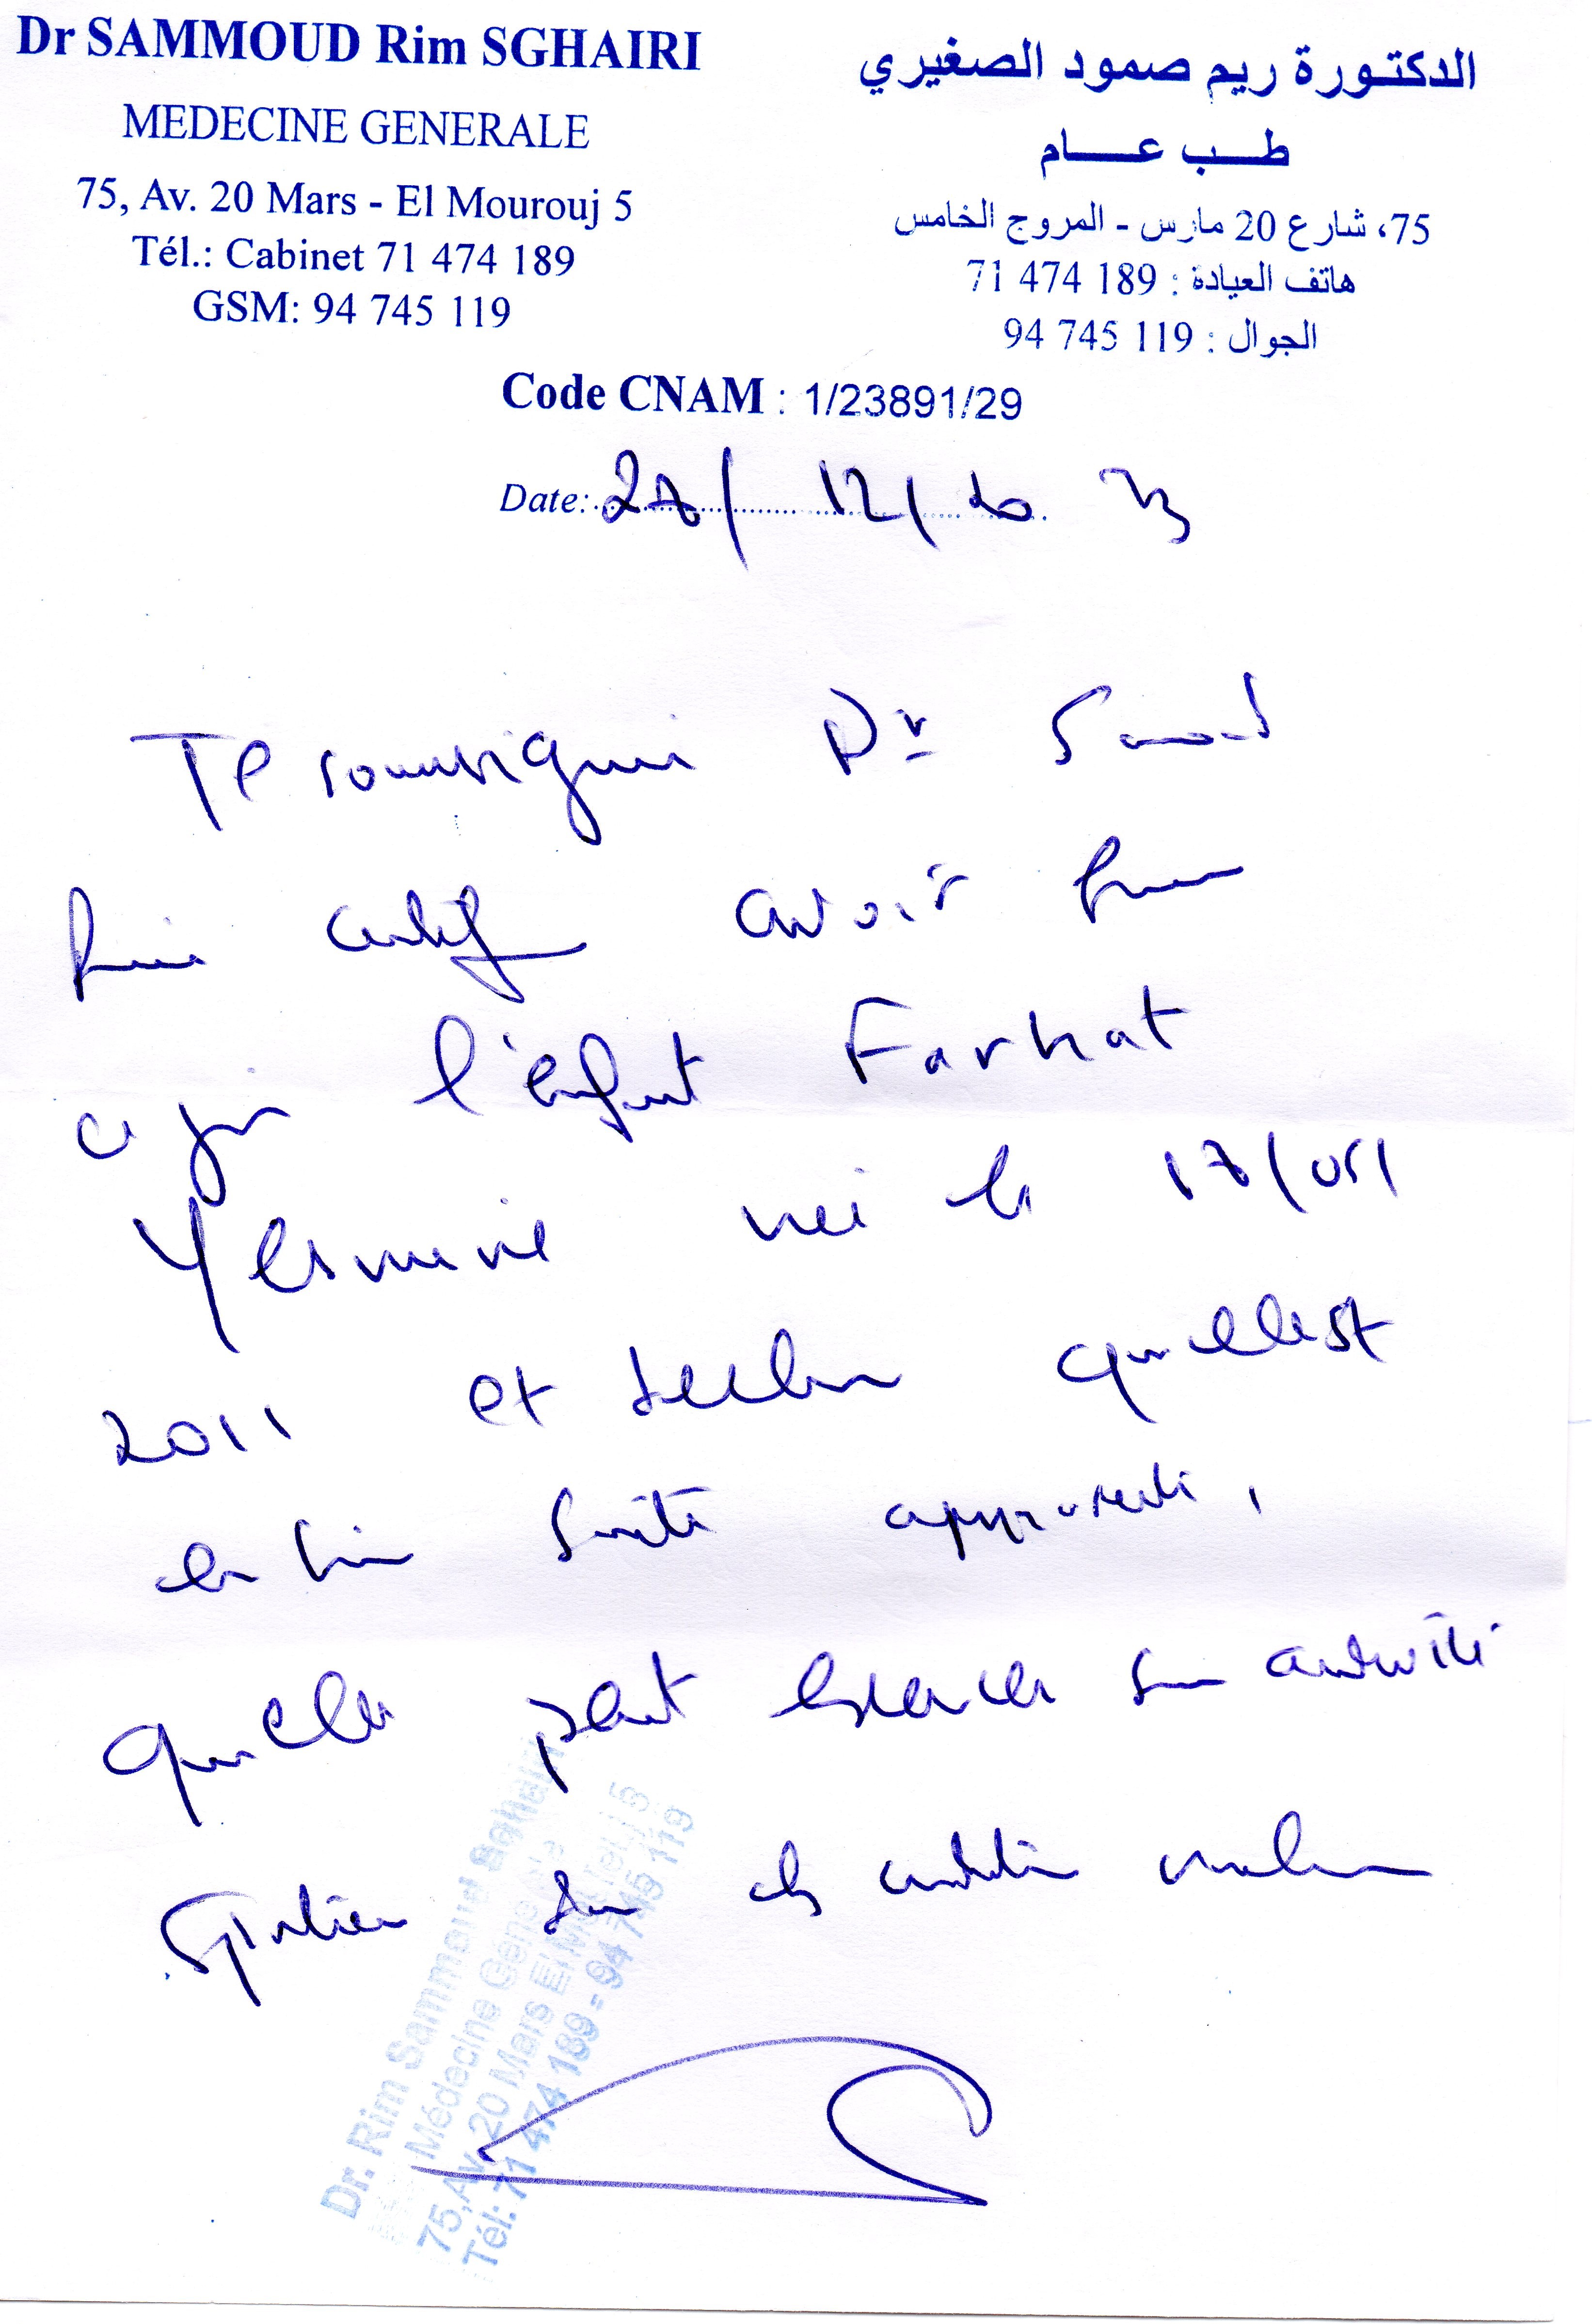 Dr SAMMOUD Rim SGHAIRI
MEDECINE GENERALE
75, Av. 20 Mars - El Mourouj 5
Tél.: Cabinet 71 474 189
GSM: 94 745 119
الدكتورة ريم صمود الصغيري
طب عام
75، شارع 20 مارس - المروج الخامس
هاتف العيادة : 189 474 71
الجوال : 119 745 94
Code CNAM : 1/23891/29
Date: 28/ 12/ 20 23
Je soussigné Dr Samoud
certifie avoir
ce jour l'enfant Farhat
Yesmine née le 18/05/
2011 et déclare qu'elle est
en bonne santé apparente,
qu'elle peut exercer son activité
sportive
Dr. Rim Sammoud Sghairi
Médecine Générale
75, Av. 20 Mars El Mourouj 5
Tél: 71 474 189 - 94 745 119